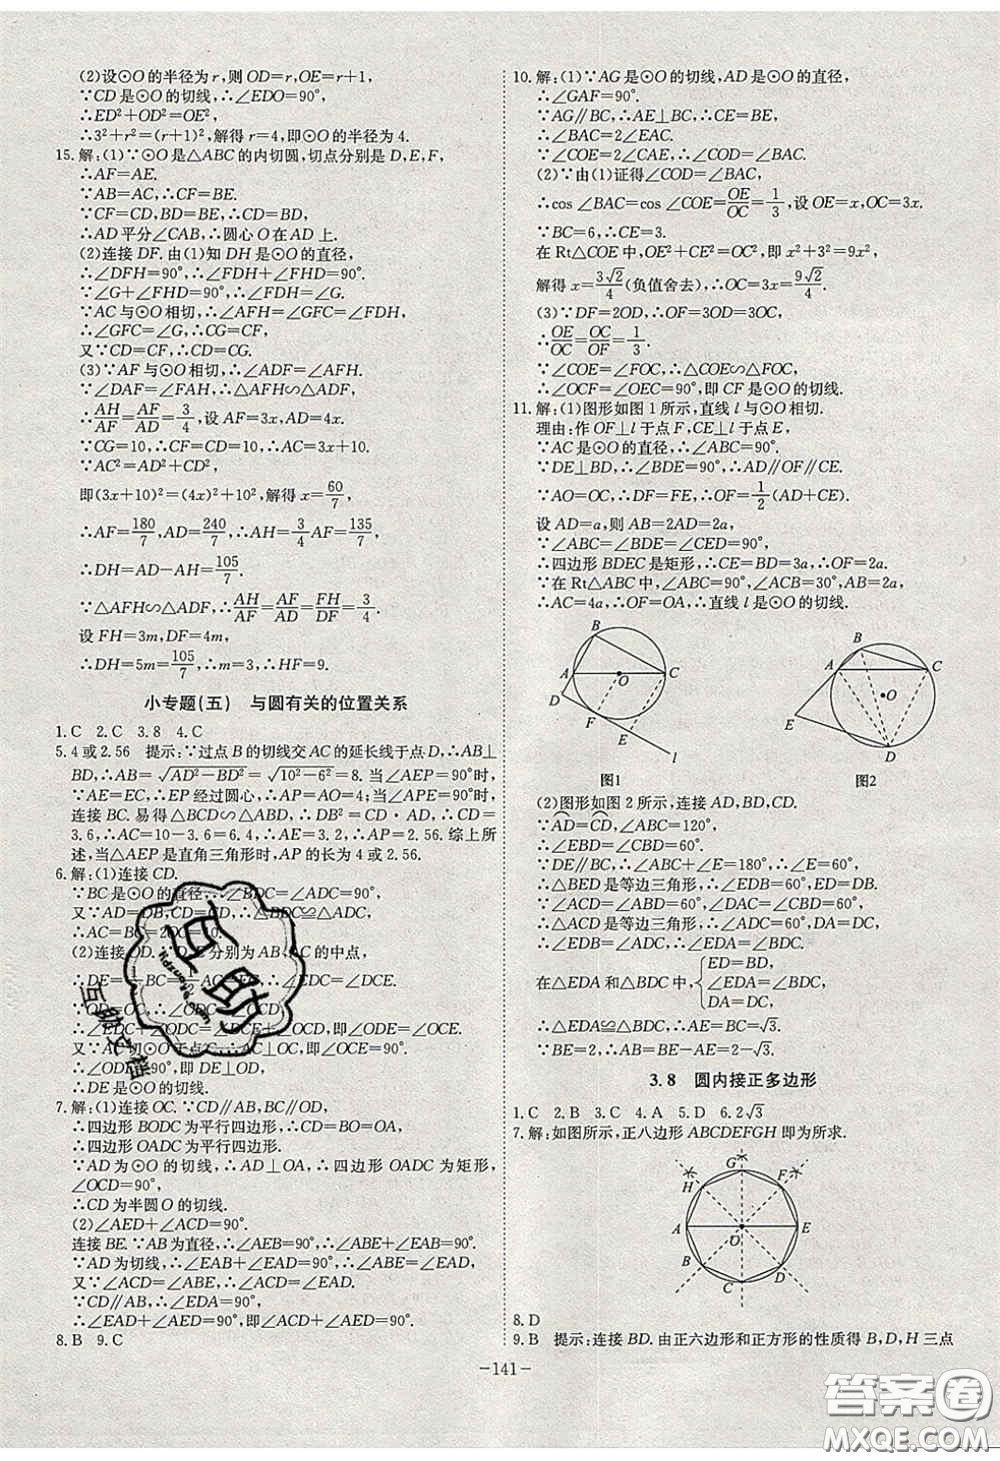 (2)设⊙O的半径为r,则OD=r,OE=r+1,
∵CD是⊙O的切线,∴∠EDO=90°,
∴ED²+OD²=OE²,
∴3²+r²=(r+1)²,解得r=4,即⊙O的半径为4.
15.解:(1)∵⊙O是△ABC的内切圆,切点分别是D,E,F,
∴AF=AE.
∵AB=AC,∴CF=BE.
∵CF=CD,BD=BE,∴CD=BD,
∴AD平分∠CAB,∴圆心O在AD上.
(2)连接DF.由(1)知DH是⊙O的直径,
∴∠DFH=90°,∴∠FDH+∠FHD=90°.
∵∠G+∠FHD=90°,∴∠FDH=∠G.
∵AC与⊙O相切,∴∠AFH=∠GFC=∠FDH,
∴∠GFC=∠G,∴CG=CF,
又∵CD=CF,∴CD=CG.
(3)∵AF与⊙O相切,∴∠ADF=∠AFH.
∵∠DAF=∠FAH,∴△AFH∽△ADF,
∴AH/AF=AF/AD=3/4,∴设AF=3x,AD=4x.
∵CG=10,∴CF=CD=10,∴AC=3x+10.
∵AC²=AD²+CD²,
即(3x+10)²=(4x)²+10²,解得x=60/7,
∴AF=180/7,AD=240/7,∴AH=3/4AF=135/7,
∴DH=AD-AH=105/7.
∵△AFH∽△ADF,∴AH/AF=AF/AD=FH/DF=3/4.
设FH=3m,DF=4m,
∴DH=5m=105/7,∴m=3,∴HF=9.
小专题(五) 与圆有关的位置关系
1.C 2.C 3.8 4.C
5.4或2.56 提示:∵过点B的切线交AC的延长线于点D,∴AB⊥
BD,∴AB=√AD²-BD²=√10²-6²=8.当∠AEP=90°时,
∵AE=EC,∴EP经过圆心,∴AP=AO=4;当∠APE=90°时,
连接BC.易得△BCD∽△ABD,∴DB²=CD·AD,∴CD=
3.6,∴AC=10-3.6=6.4,∴AE=3.2,∴AP=2.56.综上所
述,当△AEP是直角三角形时,AP的长为4或2.56.
6.解:(1)连接CD.
∵BC是⊙O的直径,∴∠BDC=∠ADC=90°,
又∵AD=DB,CD=CD,∴△BDC≌△ADC,
∴AC=BC=2OC=10.
(2)连接OD.∵D,E分别为AB,AC的中点,
∴DE=1/2BC=1/2AC=EC,∴∠EDC=∠DCE.
∵OD=OC,∴∠ODC=∠OCD,
∴∠EDC+∠ODC=∠DCE+∠OCD,即∠EDO=∠ECO.
又∵AC切⊙O于点C,∴∠ECO=90°,
∴∠EDO=90°,即DE⊥OD,
∴DE是⊙O的切线.
7.解:(1)连接OC.∵CD∥AB,BC∥OD,
∴四边形BODC为平行四边形,∴CD=BO=AO,
∴四边形AODC为平行四边形.
∵AD为⊙O的切线,∴AD⊥OA,∴四边形OADC为矩形,
∠OCD=90°,
∴CD为半圆O的切线.
(2)∠AED+∠ACD=90°.
连接BE.∵AB为直径,∴∠AEB=90°,∴∠EBA+∠BAE=90°.
∵AD为切线,∴∠EAB+∠EAD=90°,∴∠ABE=∠EAD.
又∵∠ACD=∠ABE,∴∠ACD=∠EAD.
∵CD∥AB,∴∠EDA=90°,
∴∠EAD+∠AED=90°,∴∠AED+∠ACD=90°.
8.B 9.C
10.解:(1)∵AG是⊙O的切线,AD是⊙O的直径,
∴∠GAF=90°.
∵AG∥BC,∴AE⊥BC,∴CE=BE,
∴∠BAC=2∠EAC.
∵∠COE=2∠CAE,∴∠COD=∠BAC.
(2)∵由(1)证得∠COD=∠BAC,
∴cos∠BAC=cos∠COE=OE/OC=1/3,设OE=x,OC=3x.
∵BC=6,∴CE=3.
在Rt△COE中,OE²+CE²=OC²,即x²+3²=9x²,
解得x=3√2/4(负值舍去),∴OC=3x=9√2/4.
(3)∵DF=2OD,∴OF=3OD=3OC,
∴OE/OC=OC/OF=1/3.
∵∠COE=∠FOC,∴△COE∽△FOC,
∴∠OCF=∠OEC=90°,即CF是⊙O的切线.
11.解:(1)图形如图1所示,直线l与⊙O相切.
理由:作OF⊥l于点F,CE⊥l于点E,
∵AC是⊙O的直径,∴∠ABC=90°.
∵DE⊥BD,∴∠BDE=90°,∴AD∥OF∥CE.
∵AO=OC,∴DF=FE,∴OF=1/2(AD+CE).
设AD=a,则AB=2AD=2a,
∵∠ABC=∠BDE=∠CED=90°,
∴四边形BDEC是矩形,∴CE=BD=3a,∴OF=2a.
∵在Rt△ABC中,∠ABC=90°,∠ACB=30°,AB=2a,
∴AC=4a,∴OF=OA,∴直线l是⊙O的切线.
B
A
C
O
D
F
E
l
图1
B
A
C
O
E
D
图2
(2)图形如图2所示,连接AD,BD,CD.
∵AD=CD,∠ABC=120°,
∴∠EBD=∠CBD=60°.
∵DE∥BC,∴∠ABC+∠E=180°,∴∠E=60°,
∴△BED是等边三角形,∴∠BDE=60°,ED=BD,
∴△ACD是等边三角形,∴∠ADC=60°,DA=DC,
∴∠EDA=∠BDC.
在△EDA和△BDC中,{ED=BD,
∠EDA=∠BDC,
DA=DC,
∴△EDA≌△BDC,∴AE=BC=√3.
∵BE=2,∴AB=BE-AE=2-√3.
3.8 圆内接正多边形
1.C 2.B 3.C 4.A 5.D 6.2√3
7.解:如图所示,正八边形ABCDEFGH即为所求.
G
H
F
A
E
O
B
D
C
8.D
9.B 提示:连接BD.由正六边形和正方形的性质得B,D,H三点
-141-
互助
Hdzuoye.com
互助文档
答案圈
MXQE.COM